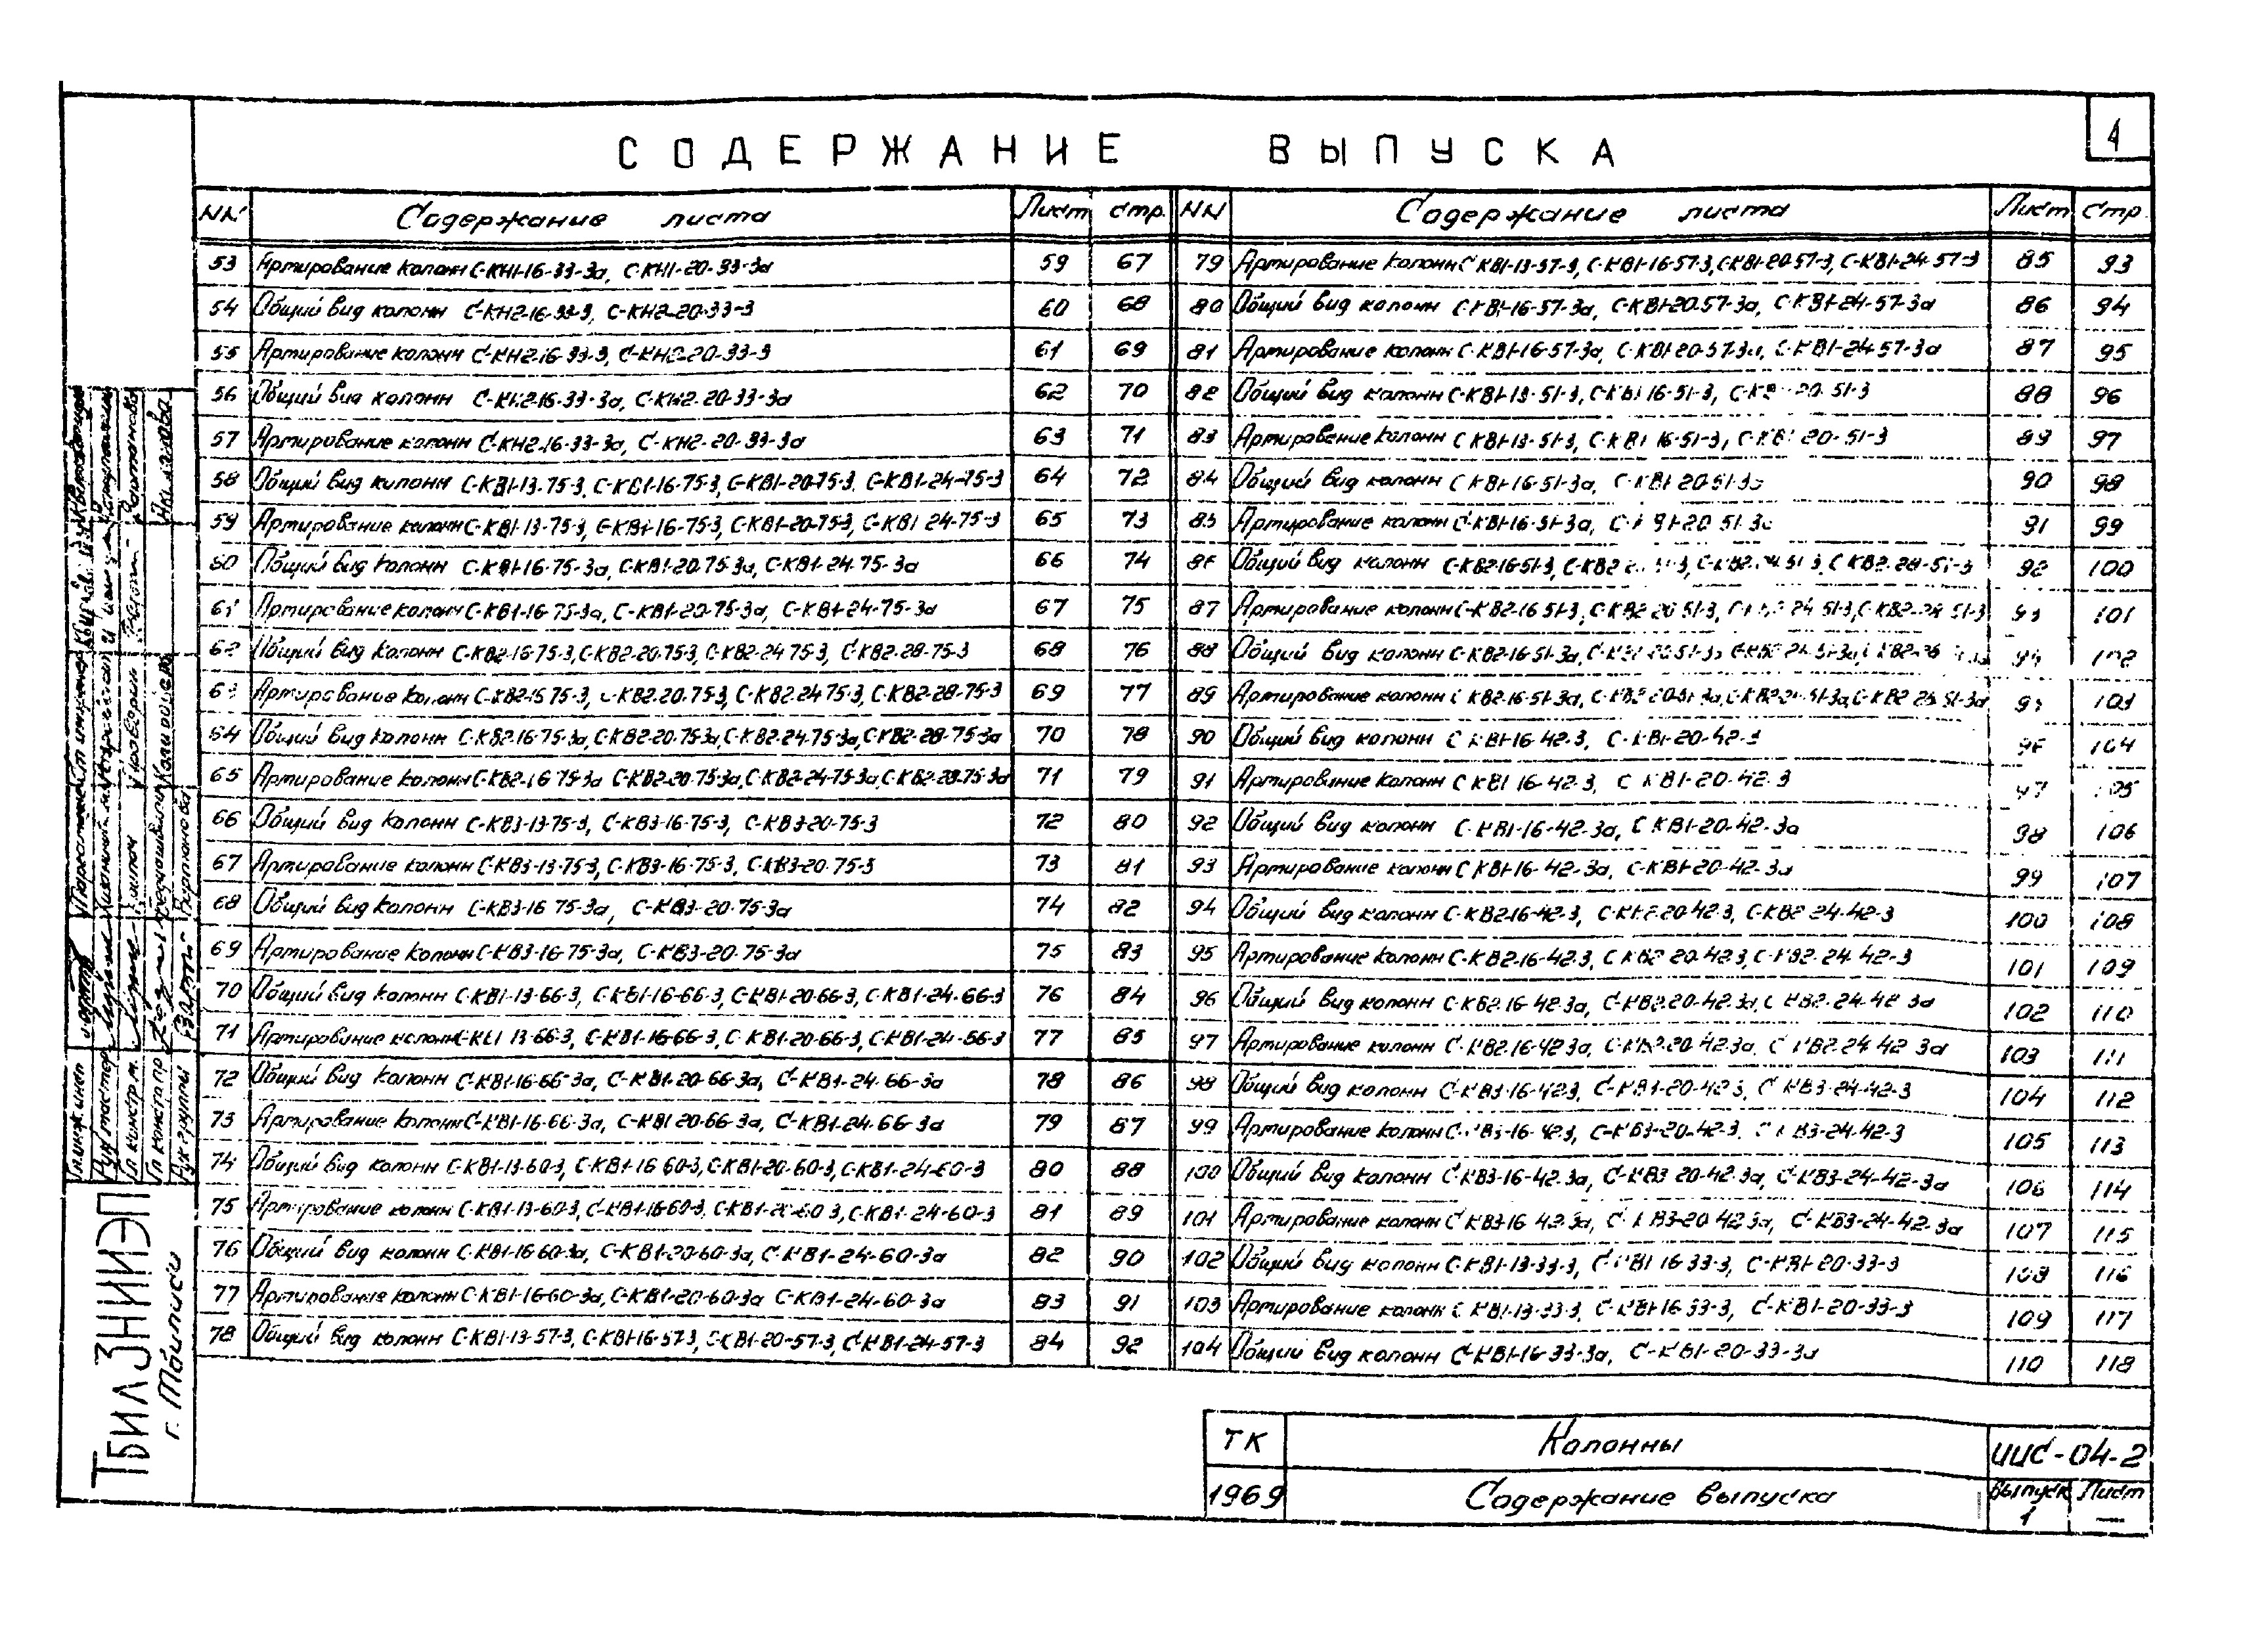 4
СОДЕРЖАНИЕ ВЫПУСКА
NN Содержание листа Лист стр.
53 Артирование колонн С-КН1-16-33-3а, С-КН1-20-33-3а 59 67
54 Общий вид колонн С-КН2-16-33-3, С-КН2-20-33-3 60 68
55 Артирование колонн С-КН2-16-33-3, С-КН2-20-33-3 61 69
56 Общий вид колонн С-КН2-16-33-3а, С-КН2-20-33-3а 62 70
57 Артирование колонн С-КН2-16-33-3а, С-КН2-20-33-3а 63 71
58 Общий вид колонн С-КВ1-13-75-3, С-КВ1-16-75-3, С-КВ1-20-75-3, С-КВ1-24-75-3 64 72
59 Артирование колонн С-КВ1-13-75-3, С-КВ1-16-75-3, С-КВ1-20-75-3, С-КВ1-24-75-3 65 73
60 Общий вид колонн С-КВ1-16-75-3а, С-КВ1-20-75-3а, С-КВ1-24-75-3а 66 74
61 Артирование колонн С-КВ1-16-75-3а, С-КВ1-20-75-3а, С-КВ1-24-75-3а 67 75
62 Общий вид колонн С-КВ2-16-75-3, С-КВ2-20-75-3, С-КВ2-24-75-3, С-КВ2-28-75-3 68 76
63 Артирование колонн С-КВ2-16-75-3, С-КВ2-20-75-3, С-КВ2-24-75-3, С-КВ2-28-75-3 69 77
64 Общий вид колонн С-КВ2-16-75-3а, С-КВ2-20-75-3а, С-КВ2-24-75-3а, С-КВ2-28-75-3а 70 78
65 Артирование колонн С-КВ2-16-75-3а С-КВ2-20-75-3а, С-КВ2-24-75-3а, С-КВ2-28-75-3а 71 79
66 Общий вид колонн С-КВ3-13-75-3, С-КВ3-16-75-3, С-КВ3-20-75-3 72 80
67 Артирование колонн С-КВ3-13-75-3, С-КВ3-16-75-3, С-КВ3-20-75-3 73 81
68 Общий вид колонн С-КВ3-16-75-3а, С-КВ3-20-75-3а 74 82
69 Артирование колонн С-КВ3-16-75-3а, С-КВ3-20-75-3а 75 83
70 Общий вид колонн С-КВ1-13-66-3, С-КВ1-16-66-3, С-КВ1-20-66-3, С-КВ1-24-66-3 76 84
71 Артирование колонн С-КВ1-13-66-3, С-КВ1-16-66-3, С-КВ1-20-66-3, С-КВ1-24-66-3 77 85
72 Общий вид колонн С-КВ1-16-66-3а, С-КВ1-20-66-3а, С-КВ1-24-66-3а 78 86
73 Артирование колонн С-КВ1-16-66-3а, С-КВ1-20-66-3а, С-КВ1-24-66-3а 79 87
74 Общий вид колонн С-КВ1-13-60-3, С-КВ1-16-60-3, С-КВ1-20-60-3, С-КВ1-24-60-3 80 88
75 Артирование колонн С-КВ1-13-60-3, С-КВ1-16-60-3, С-КВ1-20-60-3, С-КВ1-24-60-3 81 89
76 Общий вид колонн С-КВ1-16-60-3а, С-КВ1-20-60-3а, С-КВ1-24-60-3а 82 90
77 Артирование колонн С-КВ1-16-60-3а, С-КВ1-20-60-3а С-КВ1-24-60-3а 83 91
78 Общий вид колонн С-КВ1-13-57-3, С-КВ1-16-57-3, С-КВ1-20-57-3, С-КВ1-24-57-3 84 92
NN Содержание листа Лист Стр.
79 Артирование колонн С-КВ1-13-57-3, С-КВ1-16-57-3, С-КВ1-20-57-3, С-КВ1-24-57-3 85 93
80 Общий вид колонн С-КВ1-16-57-3а, С-КВ1-20-57-3а, С-КВ1-24-57-3а 86 94
81 Артирование колонн С-КВ1-16-57-3а, С-КВ1-20-57-3а, С-КВ1-24-57-3а 87 95
82 Общий вид колонн С-КВ1-13-51-3, С-КВ1-16-51-3, С-КВ1-20-51-3 88 96
83 Артирование колонн С-КВ1-13-51-3, С-КВ1-16-51-3, С-КВ1-20-51-3 89 97
84 Общий вид колонн С-КВ1-16-51-3а, С-КВ1-20-51-3а 90 98
85 Артирование колонн С-КВ1-16-51-3а, С-КВ1-20-51-3а 91 99
86 Общий вид колонн С-КВ2-16-51-3, С-КВ2-20-51-3, С-КВ2-24-51-3, С-КВ2-28-51-3 92 100
87 Артирование колонн С-КВ2-16-51-3, С-КВ2-20-51-3, С-КВ2-24-51-3, С-КВ2-28-51-3 93 101
88 Общий вид колонн С-КВ2-16-51-3а, С-КВ2-20-51-3а, С-КВ2-24-51-3а, С-КВ2-28-51-3а 94 102
89 Артирование колонн С-КВ2-16-51-3а, С-КВ2-20-51-3а, С-КВ2-24-51-3а, С-КВ2-28-51-3а 95 103
90 Общий вид колонн С-КВ1-16-42-3, С-КВ1-20-42-3 96 104
91 Артирование колонн С-КВ1-16-42-3, С-КВ1-20-42-3 97 105
92 Общий вид колонн С-КВ1-16-42-3а, С-КВ1-20-42-3а 98 106
93 Артирование колонн С-КВ1-16-42-3а, С-КВ1-20-42-3а 99 107
94 Общий вид колонн С-КВ2-16-42-3, С-КВ2-20-42-3, С-КВ2-24-42-3 100 108
95 Артирование колонн С-КВ2-16-42-3, С-КВ2-20-42-3, С-КВ2-24-42-3 101 109
96 Общий вид колонн С-КВ2-16-42-3а, С-КВ2-20-42-3а, С-КВ2-24-42-3а 102 110
97 Артирование колонн С-КВ2-16-42-3а, С-КВ2-20-42-3а, С-КВ2-24-42-3а 103 111
98 Общий вид колонн С-КВ3-16-42-3, С-КВ3-20-42-3, С-КВ3-24-42-3 104 112
99 Артирование колонн С-КВ3-16-42-3, С-КВ3-20-42-3, С-КВ3-24-42-3 105 113
100 Общий вид колонн С-КВ3-16-42-3а, С-КВ3-20-42-3а, С-КВ3-24-42-3а 106 114
101 Артирование колонн С-КВ3-16-42-3а, С-КВ3-20-42-3а, С-КВ3-24-42-3а 107 115
102 Общий вид колонн С-КВ1-13-33-3, С-КВ1-16-33-3, С-КВ1-20-33-3 108 116
103 Артирование колонн С-КВ1-13-33-3, С-КВ1-16-33-3, С-КВ1-20-33-3 109 117
104 Общий вид колонн С-КВ1-16-33-3а, С-КВ1-20-33-3а 110 118
ТК Колонны ИИС-04-2
1969 Содержание выпуска Выпуск 1 Лист —
ТбилЗНИИЭП
г. Тбилиси
Гл. инж. инст
Рук. мастер
Гл. констр. м.
Гл. констр. пр
Рук. группы